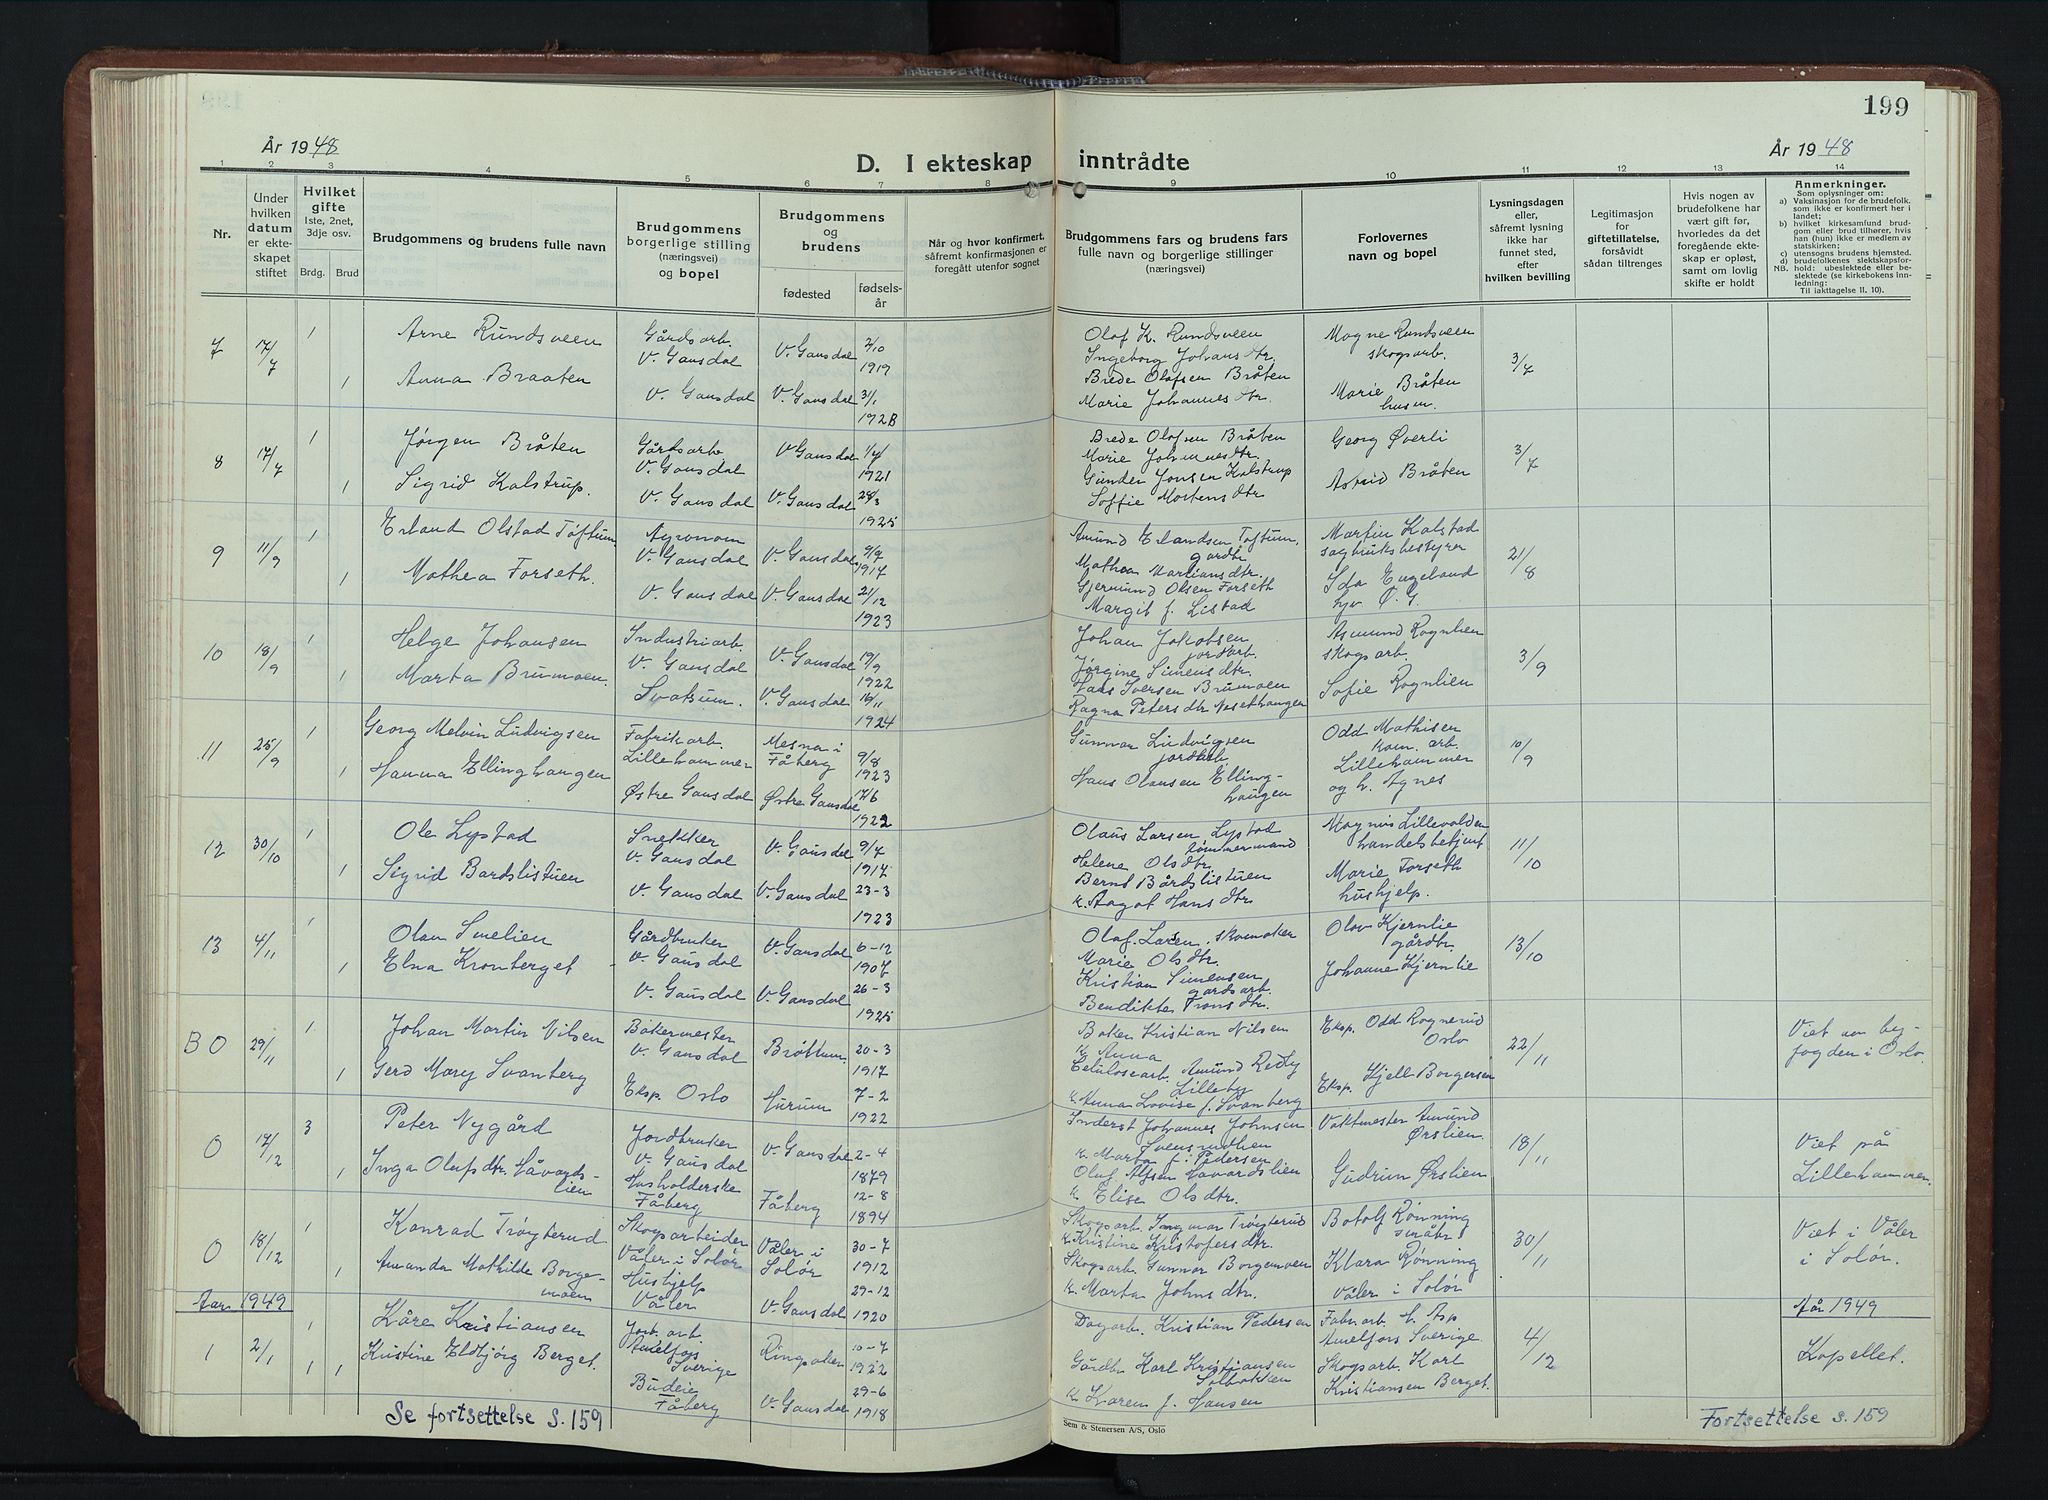 199
År 1948
År 1948
D. I ekteskap inntrådte
1 2 3 4 5 6 7 8 9 10 11 12 13 14
Nr.
Under hvilken datum er ekteskapet stiftet
Hvilket gifte
1ste, 2net, 3dje osv.
Brdg. Brud
Brudgommens og brudens fulle navn
Brudgommens borgerlige stilling (næringsvei) og bopel
Brudgommens og brudens
fødested
fødselsår
Når og hvor konfirmert, såfremt konfirmasjonen er foregått utenfor sognet
Brudgommens fars og brudens fars fulle navn og borgerlige stillinger (næringsvei)
Forlovernes navn og bopel
Lysningsdagen eller, såfremt lysning ikke har funnet sted, efter hvilken bevilling
Legitimasjon for giftetillatelse, forsåvidt sådan tiltrenges
Hvis nogen av brudefolkene har vært gift før, hvorledes da det foregående ekteskap er opløst, samt om lovlig skifte er holdt
Anmerkninger.
Som oplysninger om:
a) Vaksinasjon for de brudefolk. som ikke er konfirmert her i landet;
b) hvilket kirkesamfund brudgom eller brud tilhører, hvis han (hun) ikke er medlem av statskirken;
c) utensogns brudens hjemsted.
d) brudefolkenes slektskapsforhold: ubeslektede eller beslektede (se kirkebokens innledning:
NB.
Til iakttagelse II. 10).
7 17/7 1 Arne Rundsveen Gårdsarb. V. Gausdal V. Gausdal 2/10 1919 Olaf K. Rundsveen Ingeborg Johans dtr. Magne Rundsveen skogsarb. 3/7
1 Anna Braaten V. Gausdal V. Gausdal 31/1 1928 Brede Olafsen Bråten Marie Johannes dtr. Marie Bråten husm.
8 17/7 1 Jørgen Bråten Gårdsarb V. Gausdal V Gausdal 1921 Brede Olafsen Bråten Marie Johannesdtr. Georg Øverli 3/7
1 Sigrid Kalstrup. V. Gausdal V. Gausdal 28/3 1925 Gunder Jonsen Kalstrup Soffie Mortens dtr Astrid Bråten
9 11/9 1 Erland Olstad Toftum Agronom V. Gausdal V. Gausdal 9/7 1917 Amund Erlandsen Toftum, gardbr Mathea Martiansdtr. Martin Kalstad sagbruksbestyrer 21/8
1 Mathea Forseth. V. Gausdal V. Gausdal 21/12 1923 Gjermund Olsen Forseth Margit f. Listad Ida Engeland hjv Ø. G.
10 18/9 1 Helge Johansen Industriarb. V. Gausdal V. Gausdal 19/9 1922 Johan Jakobsen jordarb. Jørgine Simensdtr. Asmund Rognlien skogsarb. 3/9
1 Marta Brumoen. Svatsum. V. Gausdal 16/11 1924 Hans Iversen Brumoen Ragna Peters dtr Nesethaugen Sofie Rognlien
11 25/9 1 Georg Melvin Ludvigsen Fabrikarb. Lillehammer Mesna i Fåberg 9/8 1923 Gunnar Ludvigsen jordarb Odd Mathisen kom. arb. Lillehammer og h. Agnes 10/9
1 Hanna Ellinghaugen Østre Gausdal Østre Gausdal 17/6 1922 Hans Olausen Ellinghaugen
12 30/10 1 Ole Lystad Snekker V. Gausdal V. Gausdal 9/7 1917 Olaus Larsen Lystad tømmermand Helene Olsdtr. Magnus Lillevolden handelsbetjent 11/10
1 Sigrid Bardslistuen V. Gausdal V. Gausdal 23-3 1923 Bernt Bårdslistuen k. Aagot Hans dtr. Marie Forseth hushjelp.
13 4/11 1 Olav Smelien Gårdbruker V. Gausdal V. Gausdal 6-12 1907 Olaf Larsen, skomaker Marie Olsdtr. Olav Kjernlie gårdbr. 13/10
1 Elna Kronberget V. Gausdal V. Gausdal 26-3 1925 Kristian Simensen gardsarb. Bendikte Trons dtr. Johanne Kjernlie
BO 29/11 1 Johan Martin Nilsen Bakermester V. Gausdal Brøttum 20-3 1917 Baker Kristian Nilsen k. Anna Eksp. Odd Rognerud Oslo 22/11 Viet av byfogden i Oslo.
1 Gerd Mary Svanberg Eksp. Oslo Hurum 7-2 1922 Celulosearb. Amund Redly Lilleby k. Anna Lovise f. Svanberg Eksp. Kjell Borgersen
O 17/12 3 Peter Nygård Jordbruker V. Gausdal V. Gausdal 2-4 1879 Inderst Johannes Johnsen Svensrudhen k. Marta f. Pedersen Vaktmester Amund Ørslien 18/11 Viet på Lillehammer.
1 Inga Olufsdtr. Håvardslien Husholderske Fåberg Fåberg 12-8 1894 Oluf Alfsen Håvardslien k. Elise Ols dtr. Gudrun Ørslien
O 18/12 1 Konrad Trøgterud Skogsarbeider Våler i Solør Våler i Solør 30-7 1912 Skogsarb. Ingmar Trøgterud k. Kristine Kristofers dtr. Botolf Rønning småbr 30/11 Viet i Våler i Solør.
1 Amanda Mathilde Borgemoen Hushjelp Våler V. Gausdal 29-12 1920 Skogsarb. Gunnar Borgemoen k. Marta Johns dtr. Klara Rønning Våler i Solør
Aar 1949 År 1949
1 2/1 1 Kåre Kristiansen Jorb. arb. Åmelfors Sverige Ringsaker 10-7 1922 Dagarb. Kristian Pedersen Fabr. arb. Asp Åmelfors Sverige 4/12 Kapellet.
1 1 Kristine Eldbjørg Berget. Budeie Fåberg V. Gausdal 29-6 1918 Gårdbr Karl Kristiansen Solbakken k Karen f. Hansen Skogsarb. Karl Kristiansen Berget.
Se fortsettelse S. 159
Sem & Stenersen A/S, Oslo
Fortsettelse s. 159